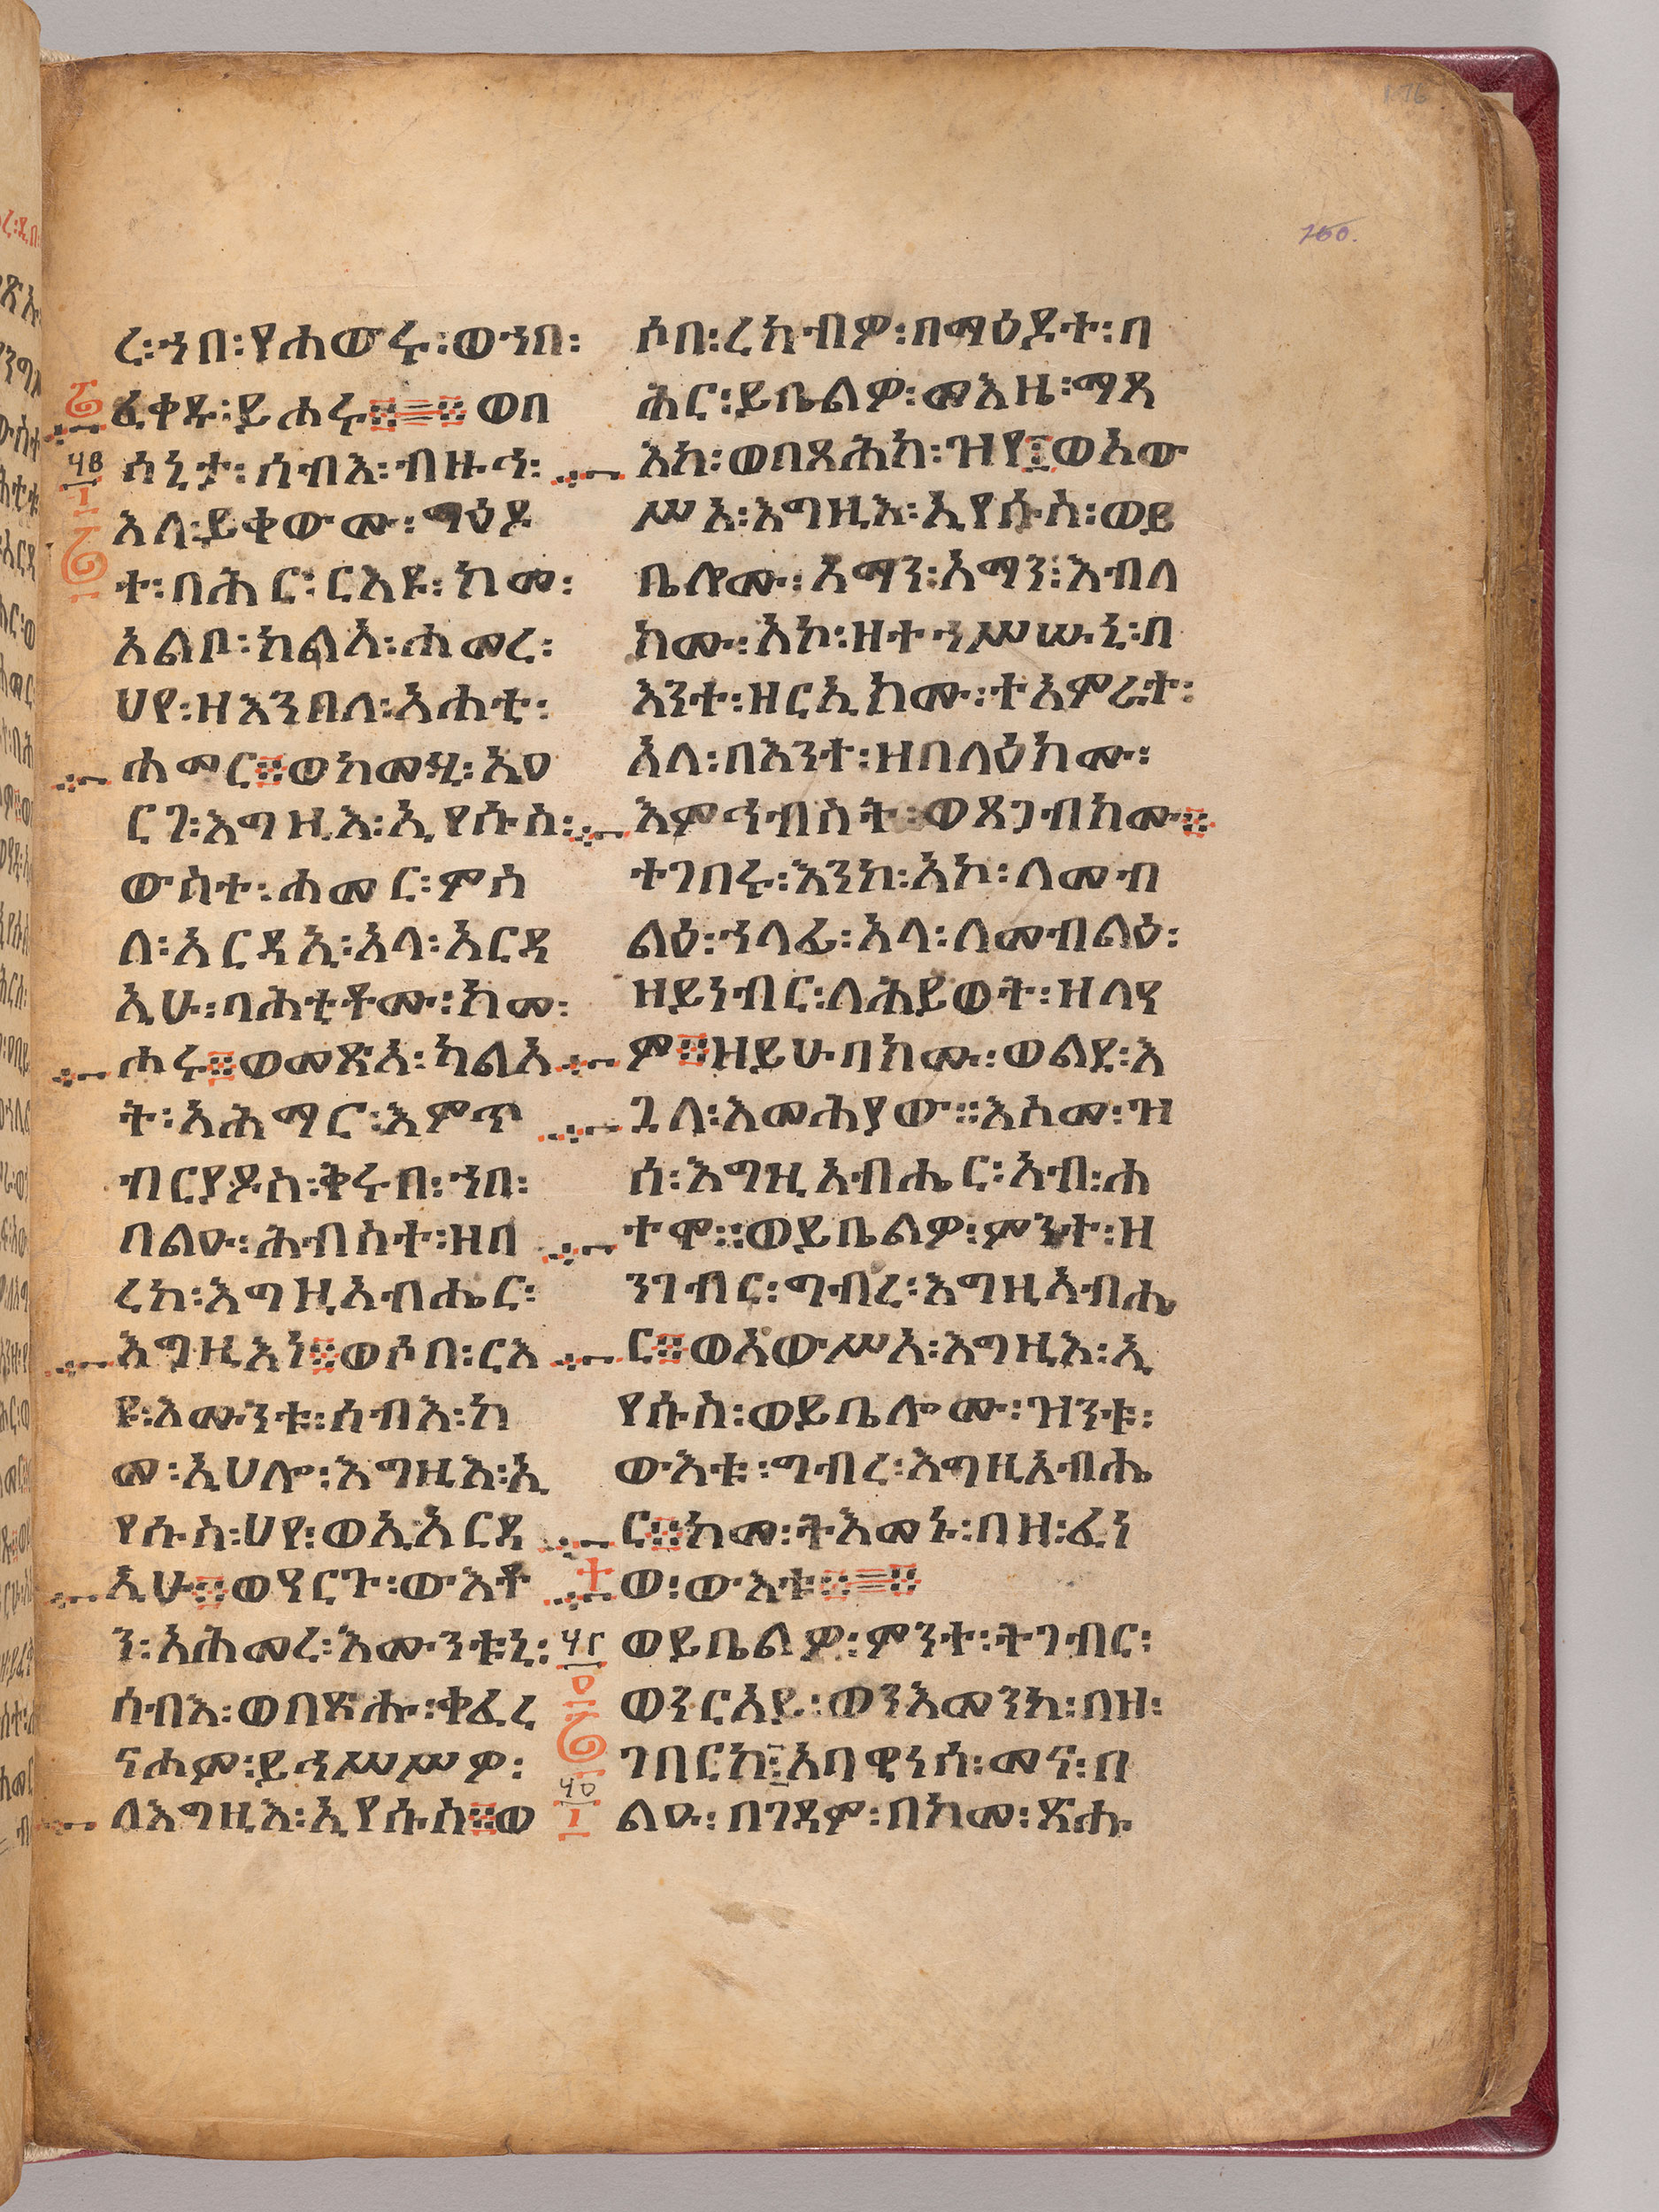 ረ፡ኀበ፡የሐውሩ፡ወኀበ፡
ፈቀዱ፡ይሐሩ፨=፨ ወበ
ሳኒታ፡ሰብእ፡ብዙኀ፡
እለ፡ይቀውሙ፡ማዕዶ
ተ፡በሕር፡ርእዩ፡ከመ፡
አልቦ፡ክልአ፡ሐመረ፡
ህየ፡ዘእንበለ፡አሐቲ፡
ሐመር፨ወከመሂ፡ኢዐ
ርገ፡እግዚእ፡ኢየሱስ፡
ውስተ፡ሐመር፡ምስ
ለ፡አርዳኢ፡አላ፡አርዳ
ኢሁ፡ባሕቲቶሙ፡ከመ፡
ሐሩ፨ወመጽአ፡ካልአ
ት፡አሕማር፡እምጥ
ብርያዶስ፡ቅሩበ፡ኀበ፡
በልዑ፡ሕብስተ፡ዘበ
ረከ፡እግዚአብሔር፡
እግዚእነ፨ወሶበ፡ርእ
ዩ፡እሙንቱ፡ሰብእ፡ከ
መ፡ኢሀሎ፡እግዚእ፡ኢ
የሱስ፡ህየ፡ወኢአርዳ
ኢሁ፨ወዓርጉ፡ውእቶ
ን፡አሕመረ፡እሙንቱኒ፡
ሰብእ፡ወበጽሑ፡ቀፈረ
ናሐም፡ይኀሥሥዎ፡
ለእግዚእ፡ኢየሱስ፨ወ
ሶበ፡ረከብዎ፡በማዕዶተ፡በ
ሕር፡ይቤልዎ፡መእዜ፡ማጻ
እከ፡ወበጻሕከ፡ዝየ፤ወአው
ሥአ፡እግዚእ፡ኢየሱስ፡ወይ
ቤሎሙ፡አማን፡አማን፡እብለ
ክሙ፡አኮ፡ዘተኀሥሡኒ፡በ
እንተ፡ዘርኢክሙ፡ተአምራተ፡
አላ፡በእንተ፡ዘበላዕክሙ፡
እምኀብስት፡ወጸጋብክሙ፨
ተገበሩ፡እንከ፡አኮ፡ለመብ
ልዕ፡ኀላፊ፡አላ፡ለመብልዕ፡
ዘይነብር፡ለሕይወት፡ዘለዓ
ም፨ዘይሁበክሙ፡ወልደ፡እ
ጓለ፡እመሕያው፡፡እስመ፡ዝ
ሰ፡እግዚአብሔር፡አብ፡ሐ
ተሞ፡፡ወይቤልዎ፡ምንተ፡ዘ
ንገብር፡ግብረ፡እግዚአብሔ
ር፨ወአውሥአ፡እግዚእ፡ኢ
የሱስ፡ወይቤሎሙ፡ዝንቱ፡
ውእቱ፡ግብረ፡እግዚአብሔ
ር፨ከመ፡ትእመኑ፡በዘ፡ፈነ
ወ፡ውእቱ፨=፨
ወይቤልዎ፡ምንተ፡ትገብር፡
ወንርአይ፡ወንእመንከ፡በዘ፡
ገበርከ፤አባዊነሰ፡መና፡በ
ልዑ፡በገዳም፡በከመ፡ጽሑ